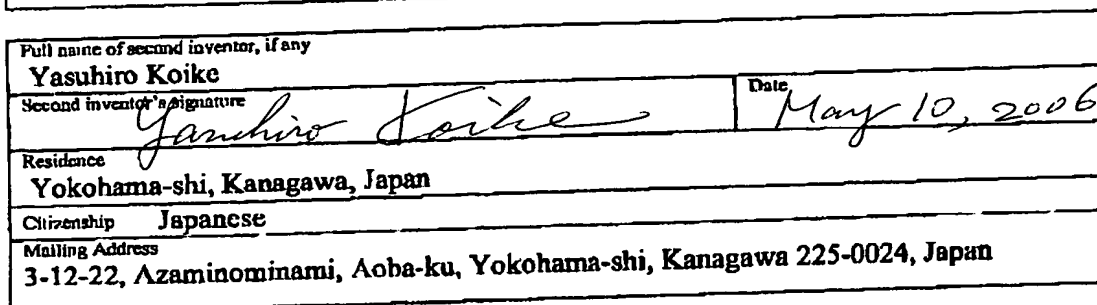 Full name of second inventor, if any
Yasuhiro Koike
Second inventor's signature Yasuhiro Koike Date May 10, 2006
Residence
Yokohama-shi, Kanagawa, Japan
Citizenship Japanese
Mailing Address
3-12-22, Azaminominami, Aoba-ku, Yokohama-shi, Kanagawa 225-0024, Japan